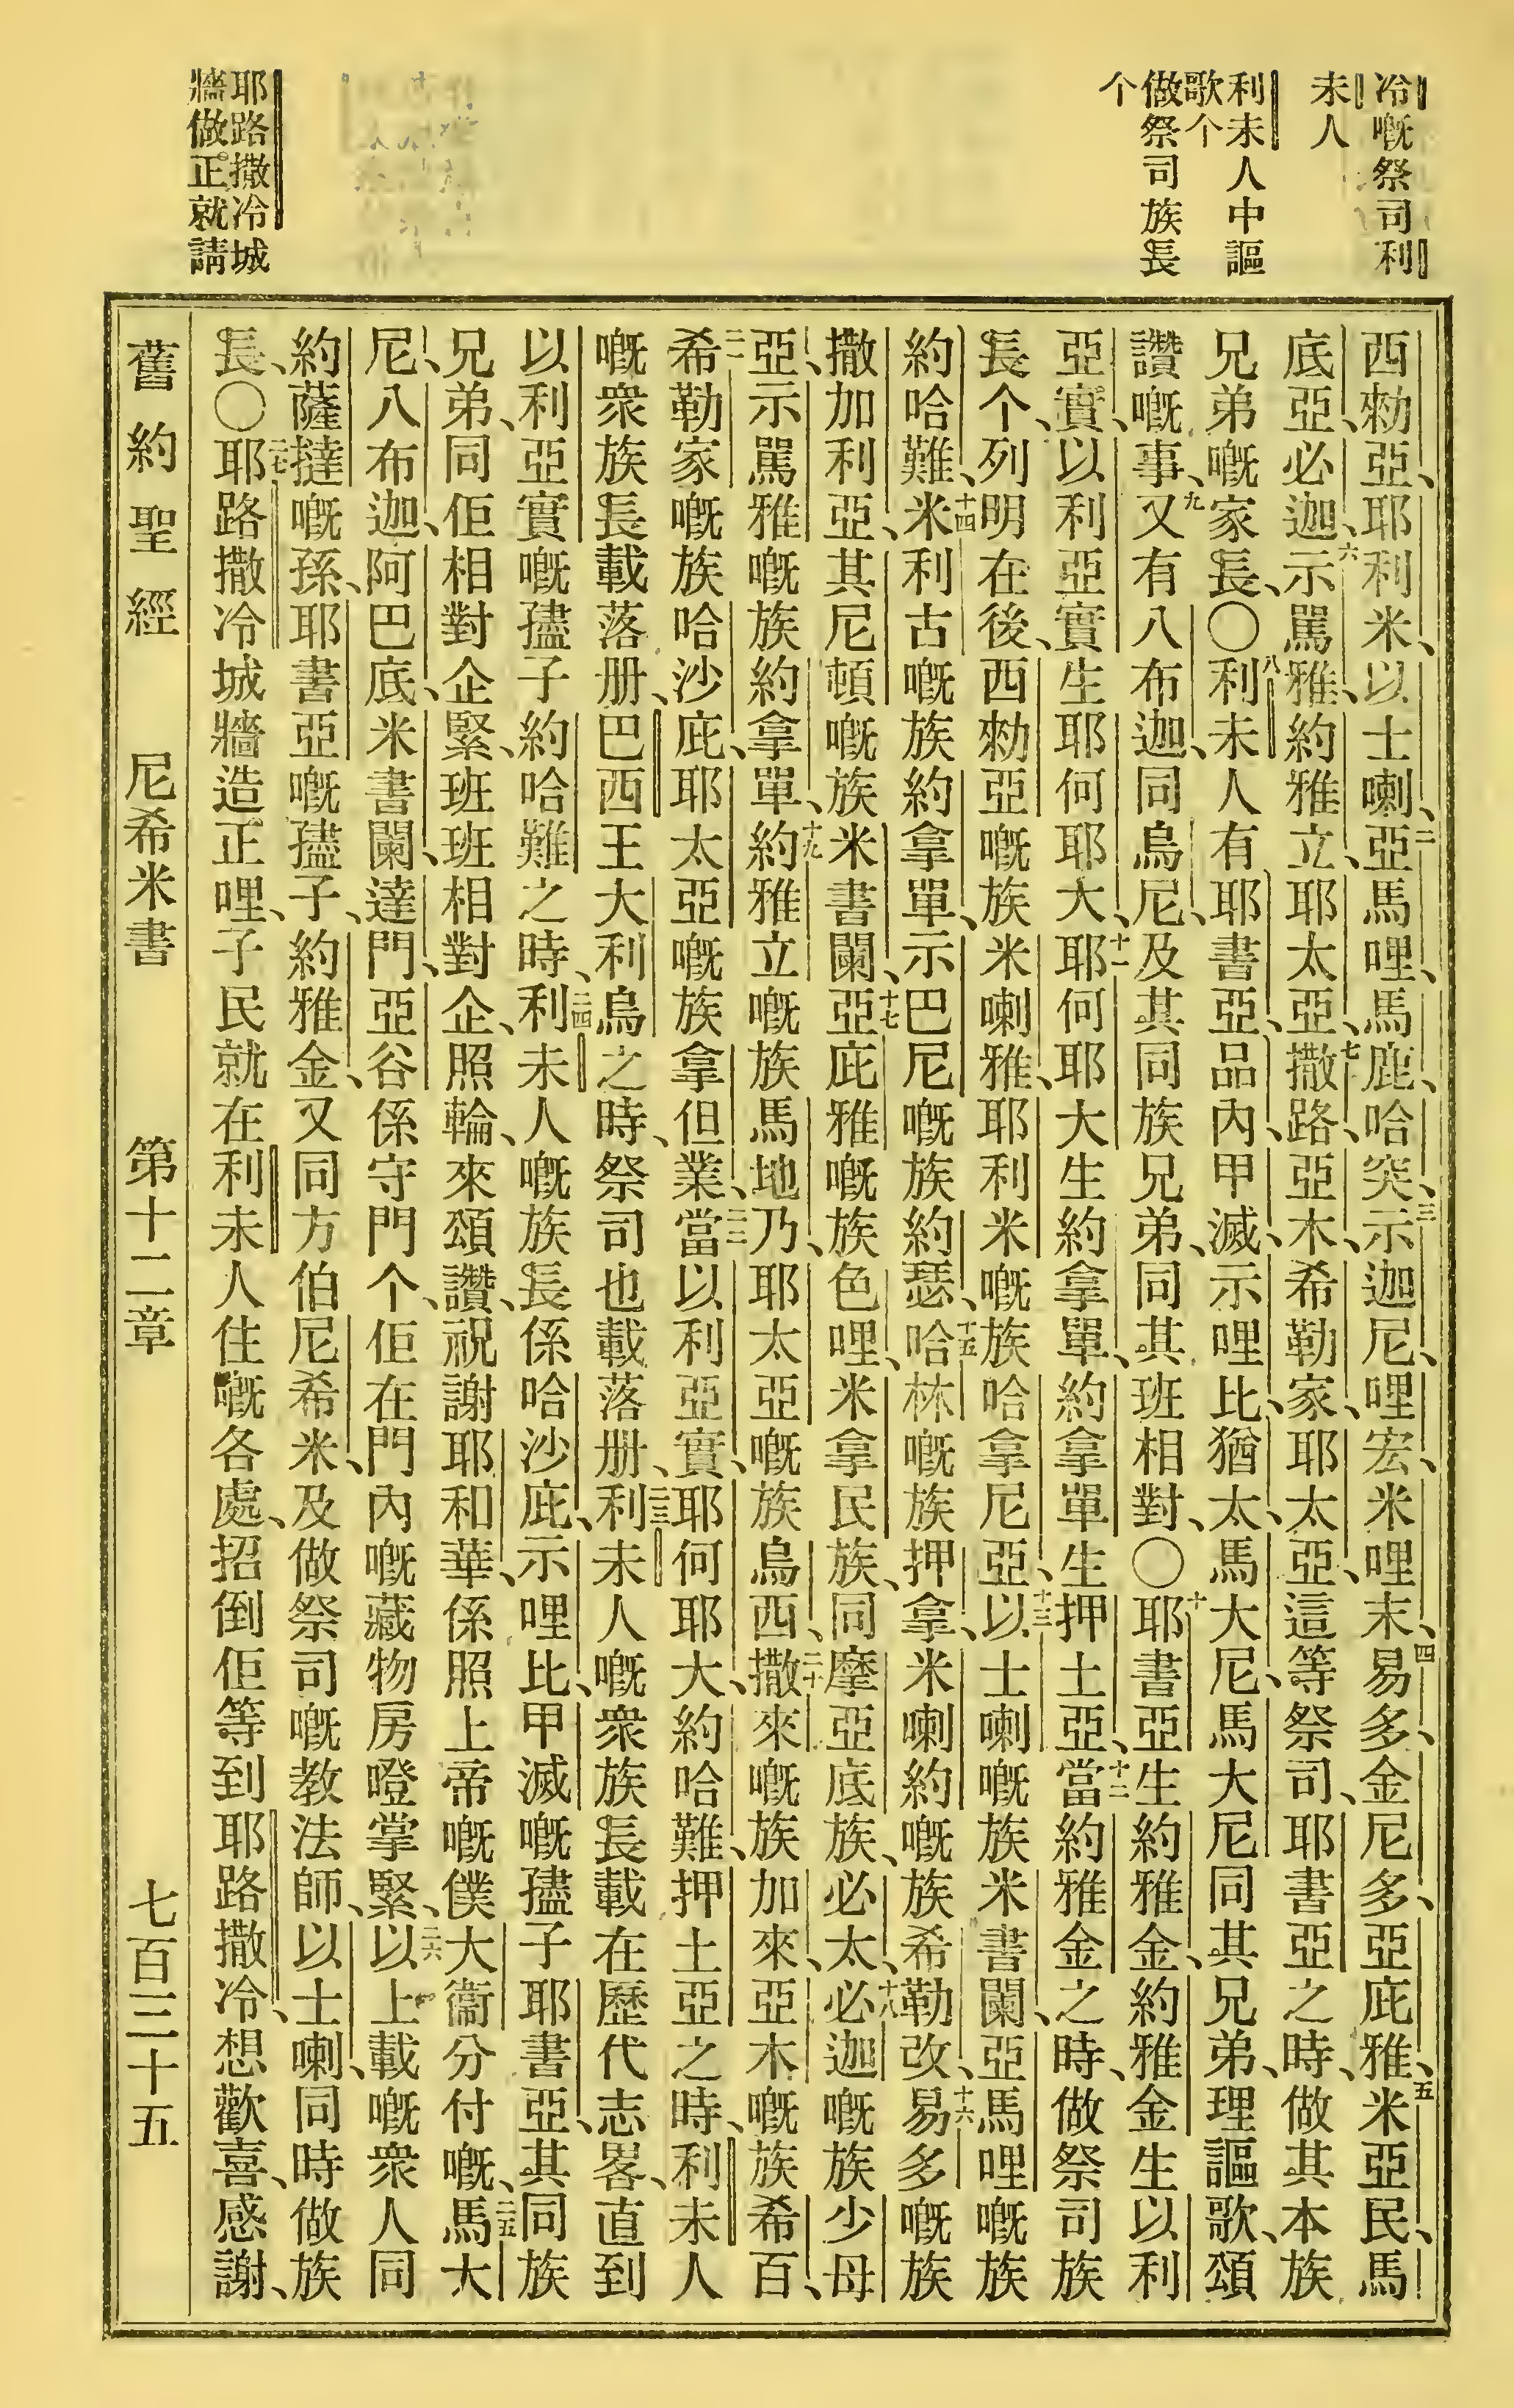 冷嘅祭司利
未人
利未人中謳
歌个
做祭司族長
个
耶路撒冷城
牆做正就請
西勑亞、耶利米、以士喇、二亞馬哩、馬鹿、哈突、三示迦尼、哩宏、米哩末、四易多、金尼多、亞庇雅、五米亞民、馬
底亞、必迦、六示罵雅、約雅立、耶太亞、七撒路、亞木、希勒家、耶太亞、這等祭司、耶書亞之時、做其本族
兄弟嘅家長、〇八利未人有耶書亞、品內、甲滅、示哩比、猶太、馬大尼、馬大尼同其兄弟、理謳歌、頌
讚嘅事、九又有八布迦、同烏尼、及其同族兄弟、同其班相對、〇十耶書亞生約雅金、約雅金生以利
亞實、以利亞實生耶何耶大、十一耶何耶大生約拿單、約拿單生押土亞、十二當約雅金之時、做祭司族
長个、列明在後、西勑亞嘅族米喇雅、耶利米嘅族哈拿尼亞、十三以士喇嘅族米書闌、亞馬哩嘅族
約哈難、十四米利古嘅族約拿單、示巴尼嘅族約瑟、十五哈林嘅族押拿、米喇約嘅族希勒改、十六易多嘅族
撒加利亞、其尼頓嘅族米書闌、十七亞庇雅嘅族色哩、米拿民族、同摩亞底族、必太、十八必迦嘅族少母
亞、示罵雅嘅族約拿單、十九約雅立嘅族馬地乃、耶太亞嘅族烏西、二十撒來嘅族加來、亞木嘅族希百、
二一希勒家嘅族哈沙庇、耶太亞嘅族拿但業、二二當以利亞實、耶何耶大、約哈難、押土亞之時、利未人
嘅衆族長載落册、巴西王大利烏之時、祭司也載落册、二三利未人嘅衆族長載在歷代志畧、直到
以利亞實嘅孻子約哈難之時、二四利未人嘅族長係哈沙庇、示哩比、甲滅嘅孻子耶書亞、其同族
兄弟、同佢相對企緊、班班相對企、照輪、來頌讚、祝謝耶和華、係照上帝嘅僕大衞分付嘅、二五馬大
尼、八布迦、阿巴底、米書闌、達門、亞谷係守門个、佢在門內嘅藏物房嶝掌緊、二六以上載嘅衆人同
約薩撻嘅孫、耶書亞嘅孻子、約雅金、又同方伯尼希米、及做祭司嘅教法師、以士喇、同時做族
長、〇二七耶路撒冷城牆造正哩、子民就在利未人住嘅各處、招倒佢等到耶路撒冷、想歡喜、感謝、
舊約聖經　尼希米書　第十二章　七百三十五